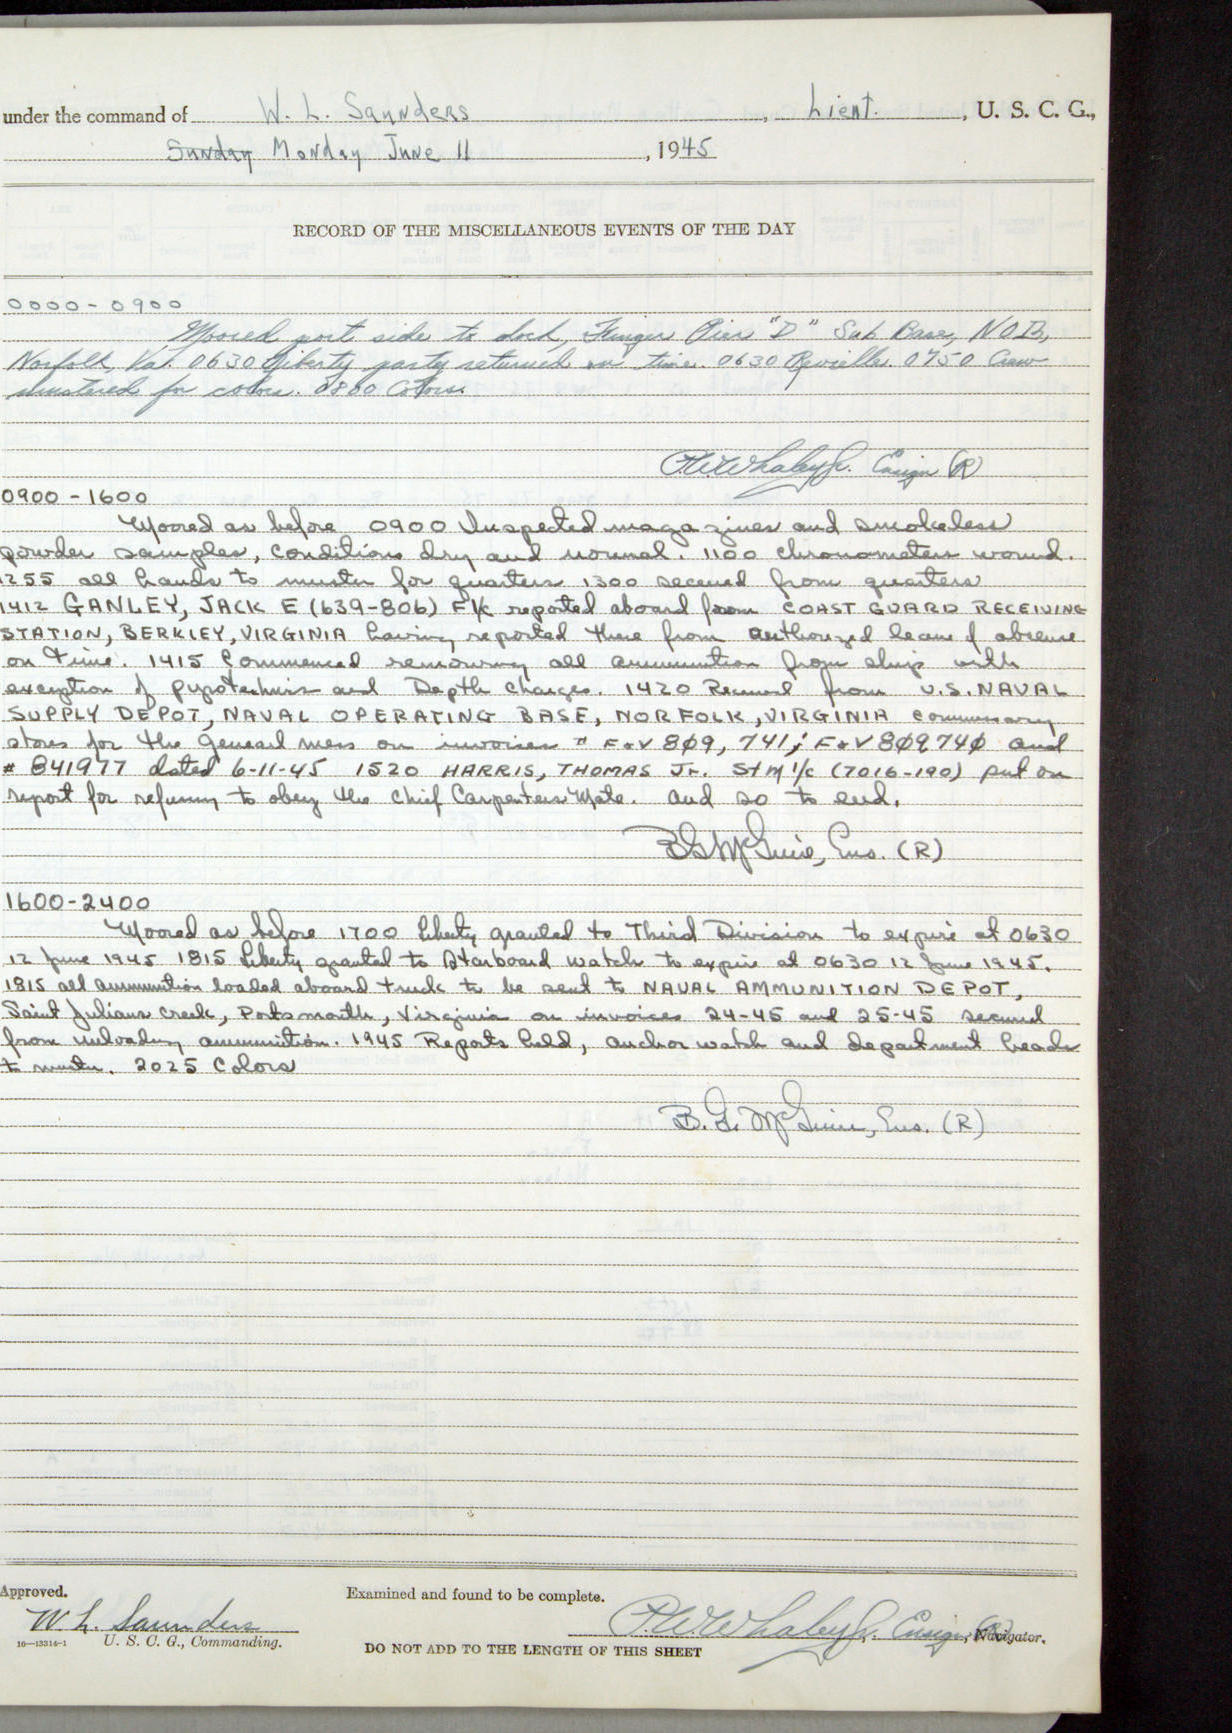 under the command of W. L. Saunders, Lieut., U. S. C. G.,
Sunday Monday June 11, 1945
RECORD OF THE MISCELLANEOUS EVENTS OF THE DAY
0000-0900
Moored port side to dock, Finger Pier "D" Sub Base, NOB,
Norfolk, Va. 0630 Liberty party returned on time. 0630 Reveille. 0750 Crew
mustered for colors. 0800 Colors.
P.W. Whaley Jr. Ensign (R)
0900-1600
Moored as before 0900 Inspected magazines and smokeless
powder samples, conditions dry and normal. 1100 chronometers wound.
1255 all hands to muster for quarters 1300 secured from quarters
1412 GANLEY, JACK E (639-806) F1/c reported aboard from COAST GUARD RECEIVING
STATION, BERKLEY, VIRGINIA having reported there from authorized leave of absence
on time. 1415 Commenced removing all ammunition from ship with
exception of pyrotechnics and Depth Charges. 1420 Received from U.S. NAVAL
SUPPLY DEPOT, NAVAL OPERATING BASE, NORFOLK, VIRGINIA commissary
stores for the general mess on invoices # F&V 809, 741; F&V 809740 and
# 841977 dated 6-11-45 1520 HARRIS, THOMAS Jr. StM 1/c (7016-190) put on
report for refusing to obey the Chief Carpenters Mate. And so to end.
B G McGuire, Ens. (R)
1600-2400
Moored as before 1700 liberty granted to Third Division to expire at 0630
12 June 1945 1815 liberty granted to Starboard watch to expire at 0630 12 June 1945.
1815 all ammunition loaded aboard truck to be sent to NAVAL AMMUNITION DEPOT,
Saint Julians Creek, Portsmouth, Virginia on invoices 24-45 and 25-45 secured
from unloading ammunition. 1945 Reports held, anchor watch and department heads
to muster. 2025 Colors
B. G. McGuire, Ens. (R)
Approved. Examined and found to be complete.
W. L. Saunders P.W. Whaley Jr. Ensign (R), Navigator.
16—13314-1 U. S. C. G., Commanding.
DO NOT ADD TO THE LENGTH OF THIS SHEET